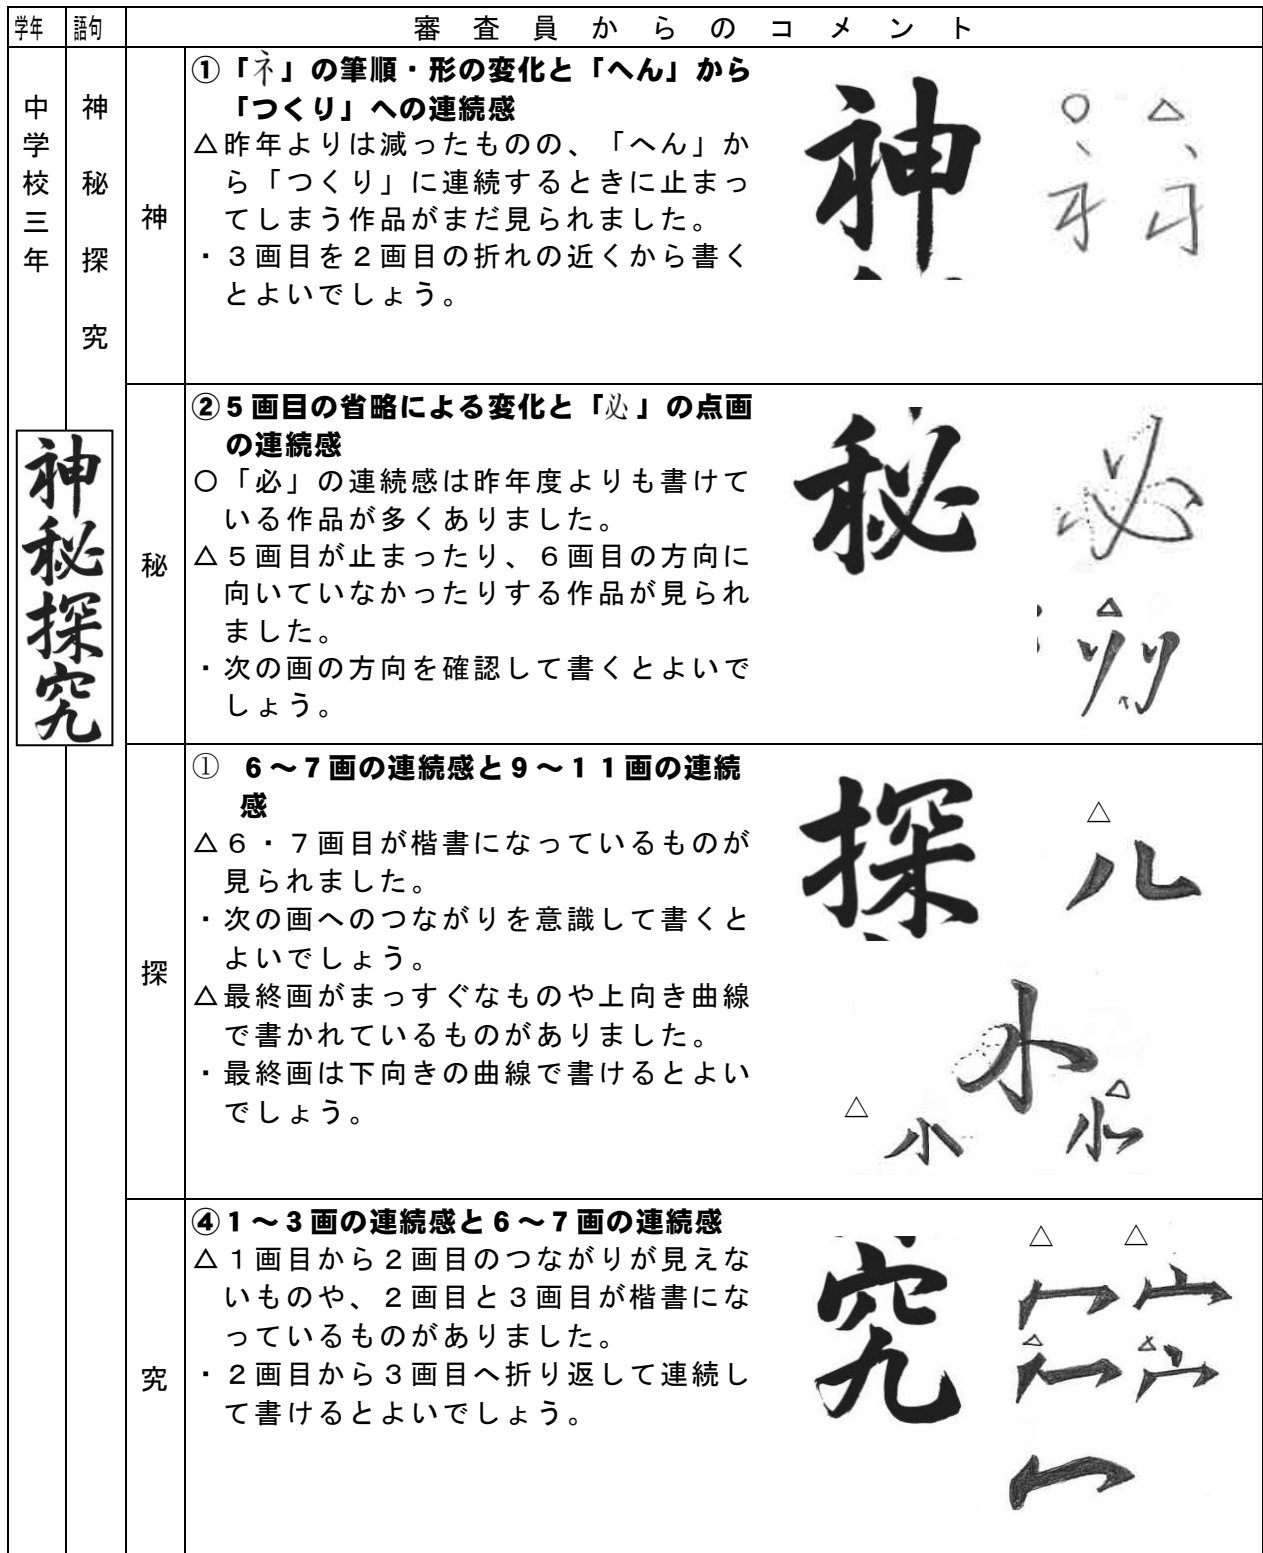 学年 語句 審査員からのコメント
中学校三年
神秘探究
神秘探究
神
①「ネ」の筆順・形の変化と「へん」から
「つくり」への連続感
△昨年よりは減ったものの、「へん」か
ら「つくり」に連続するときに止まっ
てしまう作品がまだ見られました。
・３画目を２画目の折れの近くから書く
とよいでしょう。
神
○ △
秘
②５画目の省略による変化と「必」の点画
の連続感
○「必」の連続感は昨年度よりも書けて
いる作品が多くありました。
△５画目が止まったり、６画目の方向に
向いていなかったりする作品が見られ
ました。
・次の画の方向を確認して書くとよいで
しょう。
秘
必
△
探
① ６～７画の連続感と９～１１画の連続
感
△６・７画目が楷書になっているものが
見られました。
・次の画へのつながりを意識して書くと
よいでしょう。
△最終画がまっすぐなものや上向き曲線
で書かれているものがありました。
・最終画は下向きの曲線で書けるとよい
でしょう。
探
△
△
△
究
④１～３画の連続感と６～７画の連続感
△１画目から２画目のつながりが見えな
いものや、２画目と３画目が楷書にな
っているものがありました。
・２画目から３画目へ折り返して連続し
て書けるとよいでしょう。
究
△ △
△ △